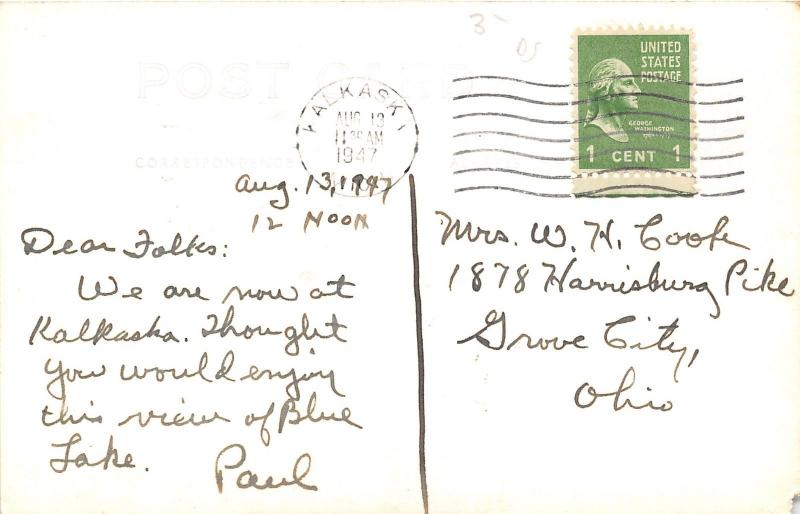 3
DS
UNITED
STATES
POSTAGE
GEORGE
WASHINGTON
1 CENT 1
POST CARD
KALKASKA
AUG 13
11 30 AM
1947
CORRESPONDENCE
ADDRESS
Aug. 13, 1947
12 NOON
Dear Folks:
We are now at
Kalkaska. Thought
you would enjoy
this view of Blue
Lake.
Paul
Mrs. W. H. Cook
1878 Harrisburg Pike
Grove City,
Ohio